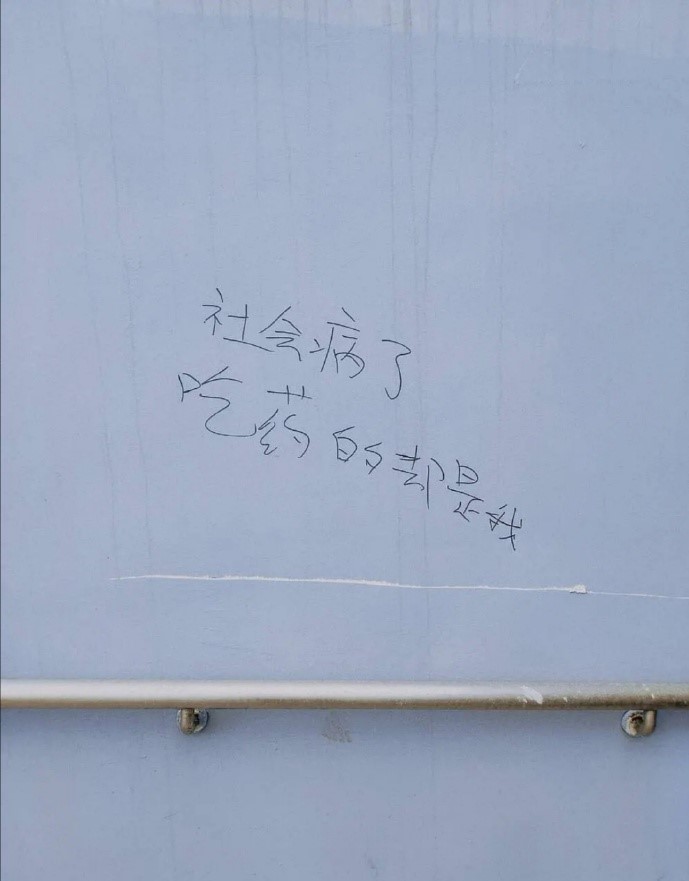 社会病了
吃药的却是我